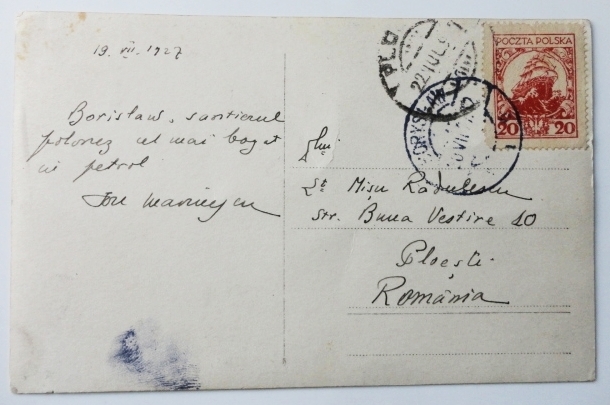 19. VII. 1927
Borislaw, santierul
polonez cel mai bogat
in petrol
Ion Marinescu
Dlui
Mişu Rădulescu
Str. Buna Vestire 10
Ploeşti
România
POCZTA POLSKA
20 20
PLO
22 IUL
BORYSŁAW
VII